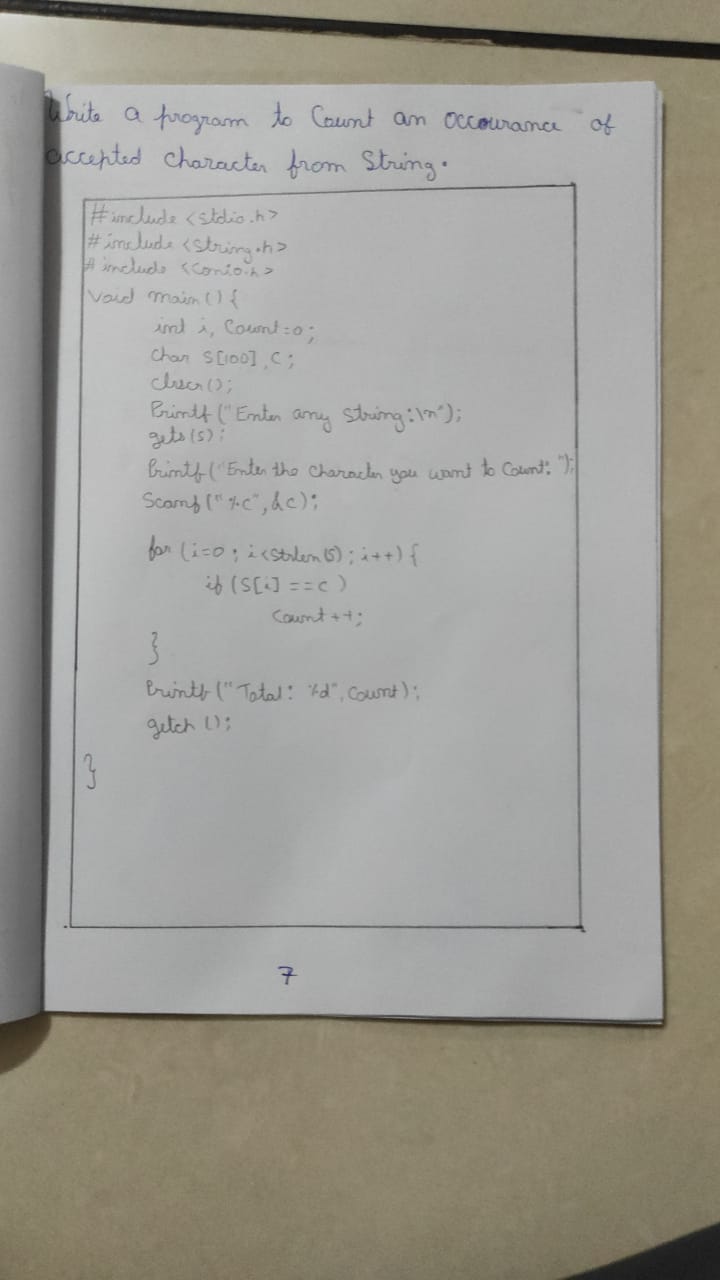 Write a program to Count an occourance of
accepted character from String.
#include <stdio.h>
#include <String.h>
#include <Conio.h>
void main() {
int i, Count=0;
Char S[100], C;
clrscr();
Printf("Enter any String:\n");
gets(s);
Printf("Enter the character you want to Count: ");
Scanf("%c",&c);
for (i=0; i<strlen(s); i++) {
if (S[i] ==c)
Count++;
}
Printf("Total: %d", Count);
getch ();
}
7